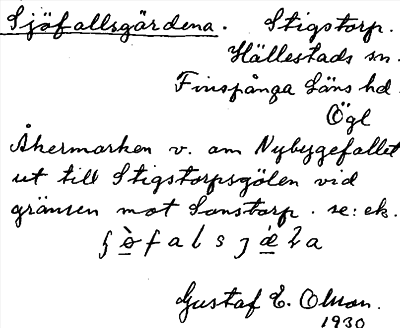 Sjöfallsgärdena. Stigstorp.
Hällestads sn.
Finspånga läns hd.
Ögl
Åkermarken v. om Nybyggefallet
ut till Stigstorpsgölen vid
gränsen mot Sonstorp. se: ek.
Gustaf E. Olson.
1930